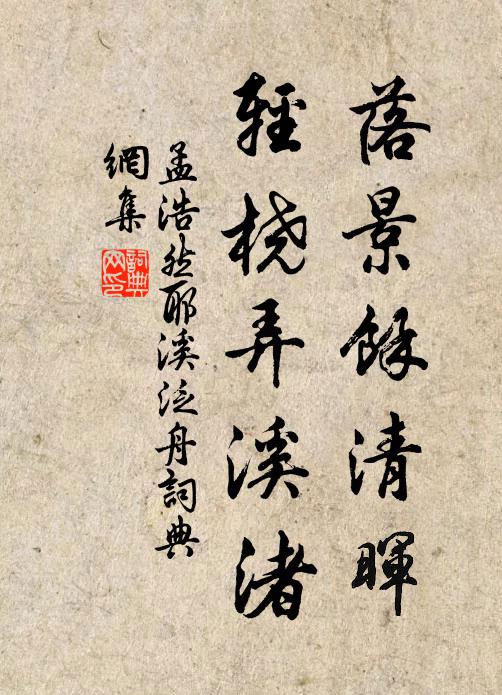 落景餘清暉
輕桡弄溪渚
孟浩然耶溪泛舟詞典
網集
詞典
网印